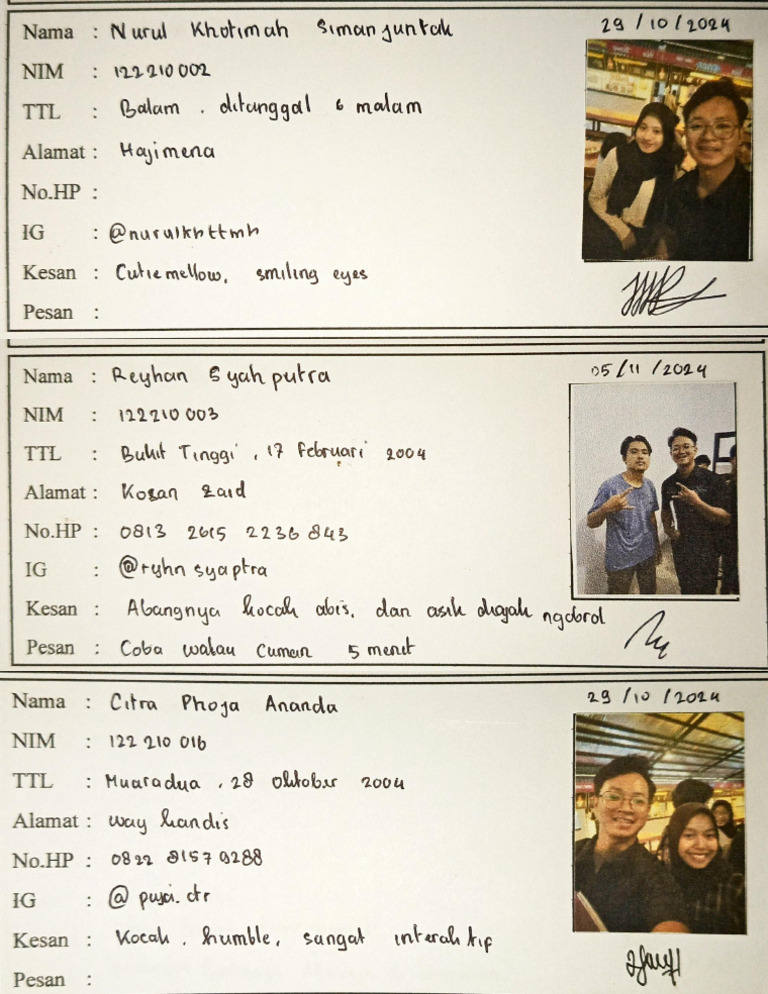 29 / 10 / 2024
Nama : Nurul Khotimah Simanjuntak
NIM : 122210002
TTL : Balam . ditanggal 6 malam
Alamat : Hajimena
No.HP :
IG : @nurulkhttmh
Kesan : Cutiemellow, smiling eyes
Pesan :
05 / 11 / 2024
Nama : Reyhan Syahputra
NIM : 122210 003
TTL : Bukit Tinggi , 17 Februari 2004
Alamat : Kosan Zaid
No.HP : 0813 2615 2236 843
IG : @ryhnsyaptra
Kesan : Abangnya kocak abis, dan asik diajak ngobrol
Pesan : Coba walau cuman 5 menit
29 / 10 / 2024
Nama : Citra Phoja Ananda
NIM : 122 210 016
TTL : Muaradua , 28 Oktober 2004
Alamat : way kandis
No.HP : 0822 8157 9288
IG : @ puja.ctr
Kesan : Kocak , humble, sangat interaktip
Pesan :